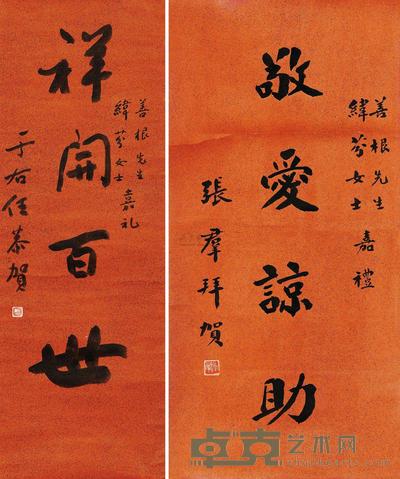 敬愛諒助
善根先生
緯芬女士 嘉禮
張羣拜賀
祥開百世
善根先生
緯芬女士 嘉礼
于右任恭賀
卓克艺术网